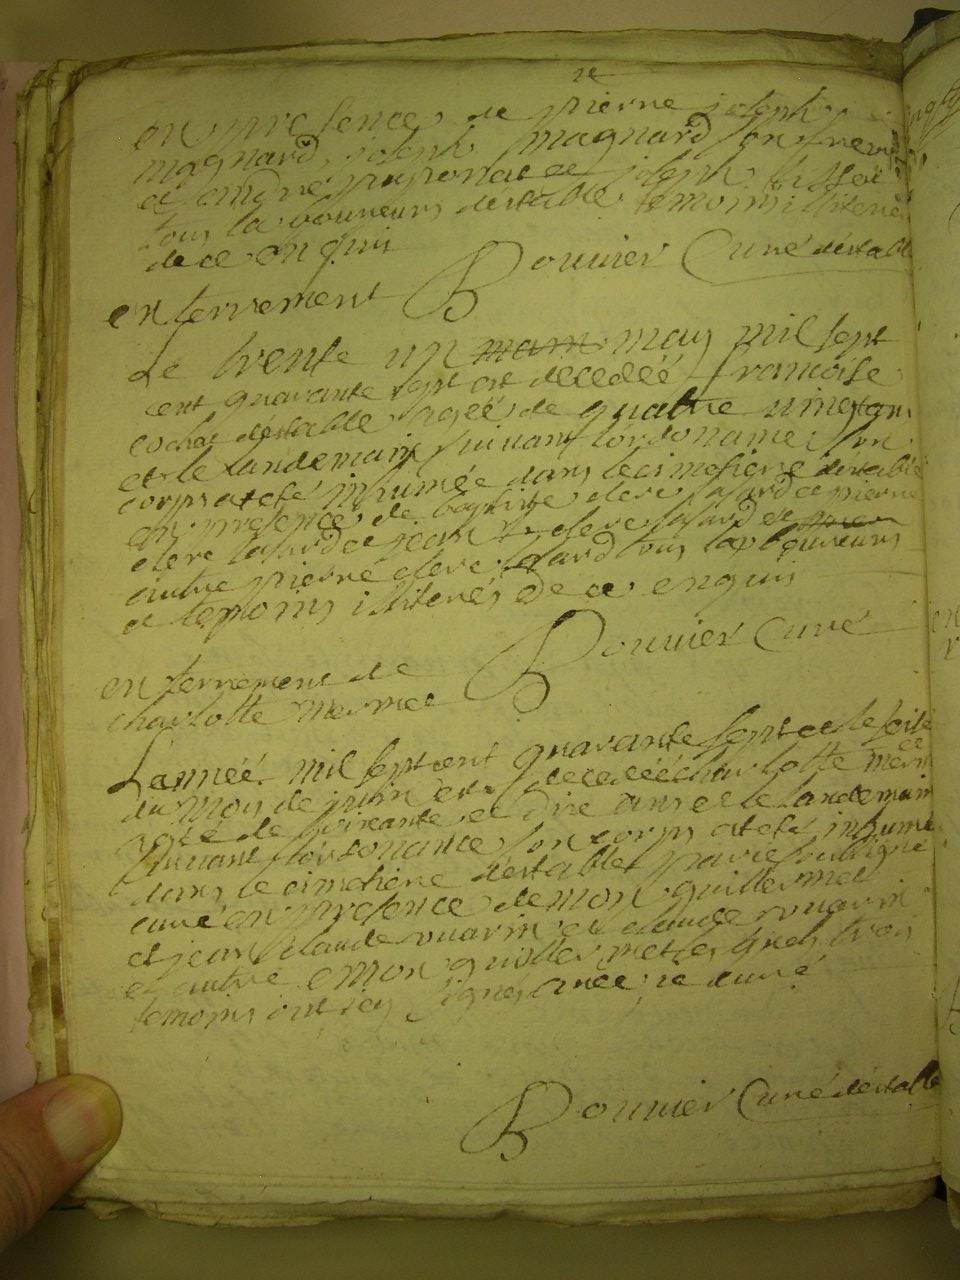 en presence de pierre joseph
magnard, joseph magnard son frere
et joseph
tous laboureurs destable temoins illiterés
de ce enquis
Bouvier Curé destable
enterrement
Le trente un may mil sept
cent quarante sept est decedéé francoise
cochet destable ageé de quatre vingt ans
et le landemain suivant l'ordonance son
corps a eté inhumée dans le cimetiere destable
en presence de baptiste clere et pierre
clere et jean clere et
autre pierre clere tous laboureurs
et temoins illiterés de ce enquis
Bouvier Curé
enterrement de
charlotte mermet
L'anneé mil sept cent quarante sept et le seise
du mois de juin est decedéé charlotte mermet
agéé de soixante et dixe ans et le landemain
suivant l'ordonance son corps a eté inhumé
dans le cimetiere destable par je soubsigné
curé en presence de mon guillermet
et jean claude ruarin et claude ruarin
et autre emon guillermet lesquels trois
temoins ont icy signes avec je curé
Bouvier Curé destable